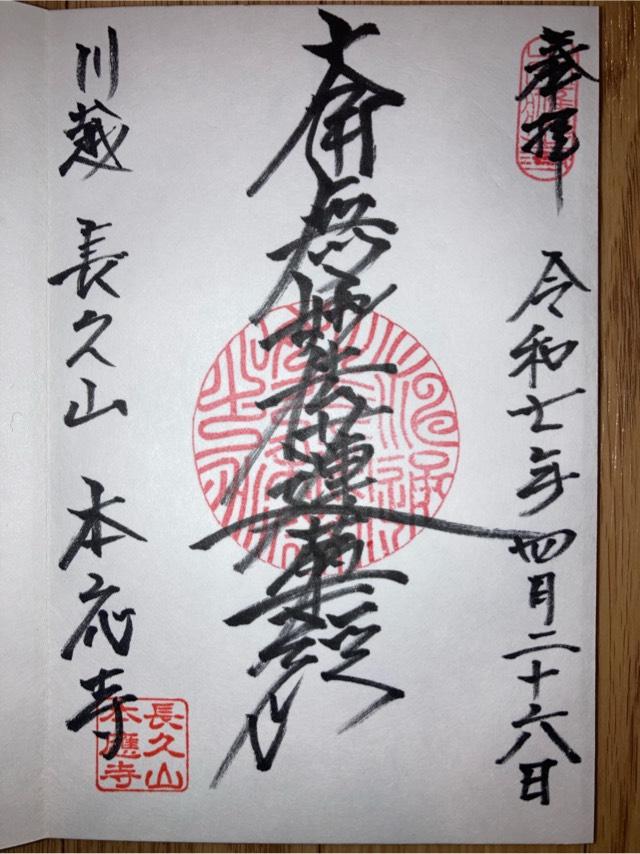 奉拝
令和七年四月二十六日
南無妙法蓮華経
川越 長久山 本応寺
長久山
本應寺